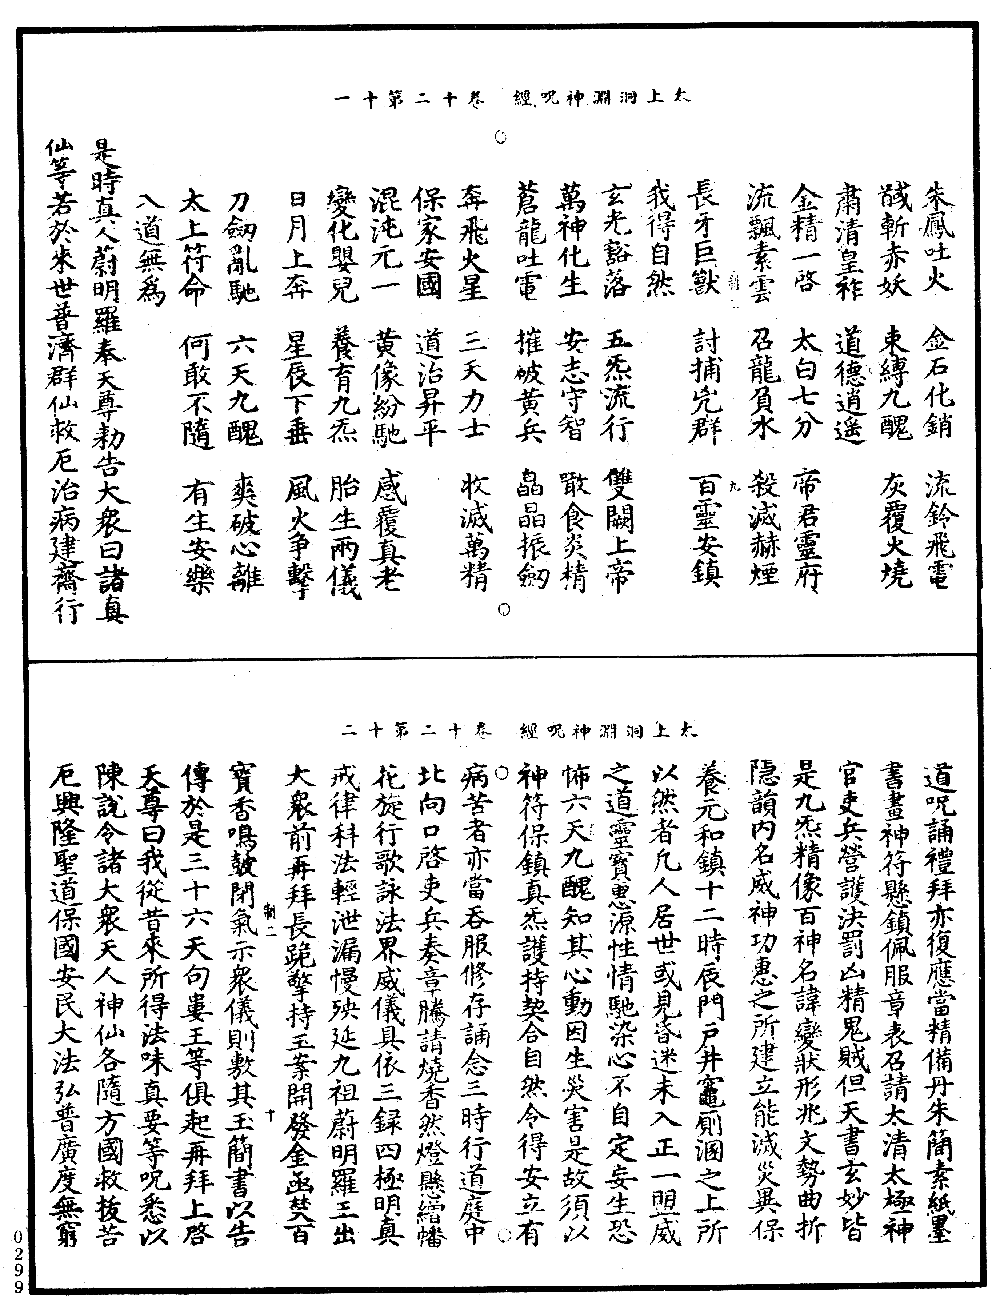 太上洞淵神呪經　卷十二第十一
朱鳳吐火　金石化銷　流鈴飛電
馘斬赤妖　束縛九醜　灰覆火燒
肅清皇祚　道德逍遥
金精一啓　太白七分　帝君靈府
流飄素雲　召龍負水　殺滅赫煙
長牙巨獸　討捕兇群　百靈安鎮
我得自然
玄光豁落　五炁流行　雙闕上帝
萬神化生　安志守智　噉食炎精
蒼龍吐電　摧破黄兵　晶晶振劒
奔飛火星　三天力士　收滅萬精
保家安國　道治昇平
混沌元一　黄像紛馳　感覆真老
變化嬰兒　養育九炁　胎生兩儀
日月上奔　星辰下垂　風火争擊
刀劒亂馳　六天九醜　爽破心離
太上符命　何敢不隨　有生安樂
入道無為
是時真人蔚明羅奉天尊勑告大衆曰諸真
仙等若於來世普濟群仙救厄治病建齋行
太上洞淵神呪經　卷十二第十二
道呪誦禮拜亦復應當精備丹朱簡素紙墨
書畫神符懸鎮佩服章表召請太清太極神
官吏兵營護決罰凶精鬼賊但天書玄妙皆
是九炁精像百神名諱變狀形兆文勢曲折
隱韻内名威神功惠之所建立能滅災異保
養元和鎮十二時辰門戸井竈厠溷之上所
以然者凡人居世或見昏迷未入正一盟威
之道靈寶惠源性情馳染心不自定妄生恐
怖六天九醜知其心動因生災害是故須以
神符保鎮真炁護持契合自然令得安立有
病苦者亦當吞服修存誦念三時行道庭中
北向口啓吏兵奏章騰請燒香然燈懸繒幡
花旋行歌詠法界威儀具依三録四極明真
戒律科法輕泄漏慢殃延九祖蔚明羅王出
大衆前再拜長跪擎持玉案開發金函焚百
寶香鳴鼓閉氣示衆儀則敷其玉簡書以告
傳於是三十六天句婁王等俱起再拜上啓
天尊曰我從昔來所得法味真要等呪悉以
陳說令諸大衆天人神仙各隨方國救拔苦
厄興隆聖道保國安民大法弘普廣度無窮
0299